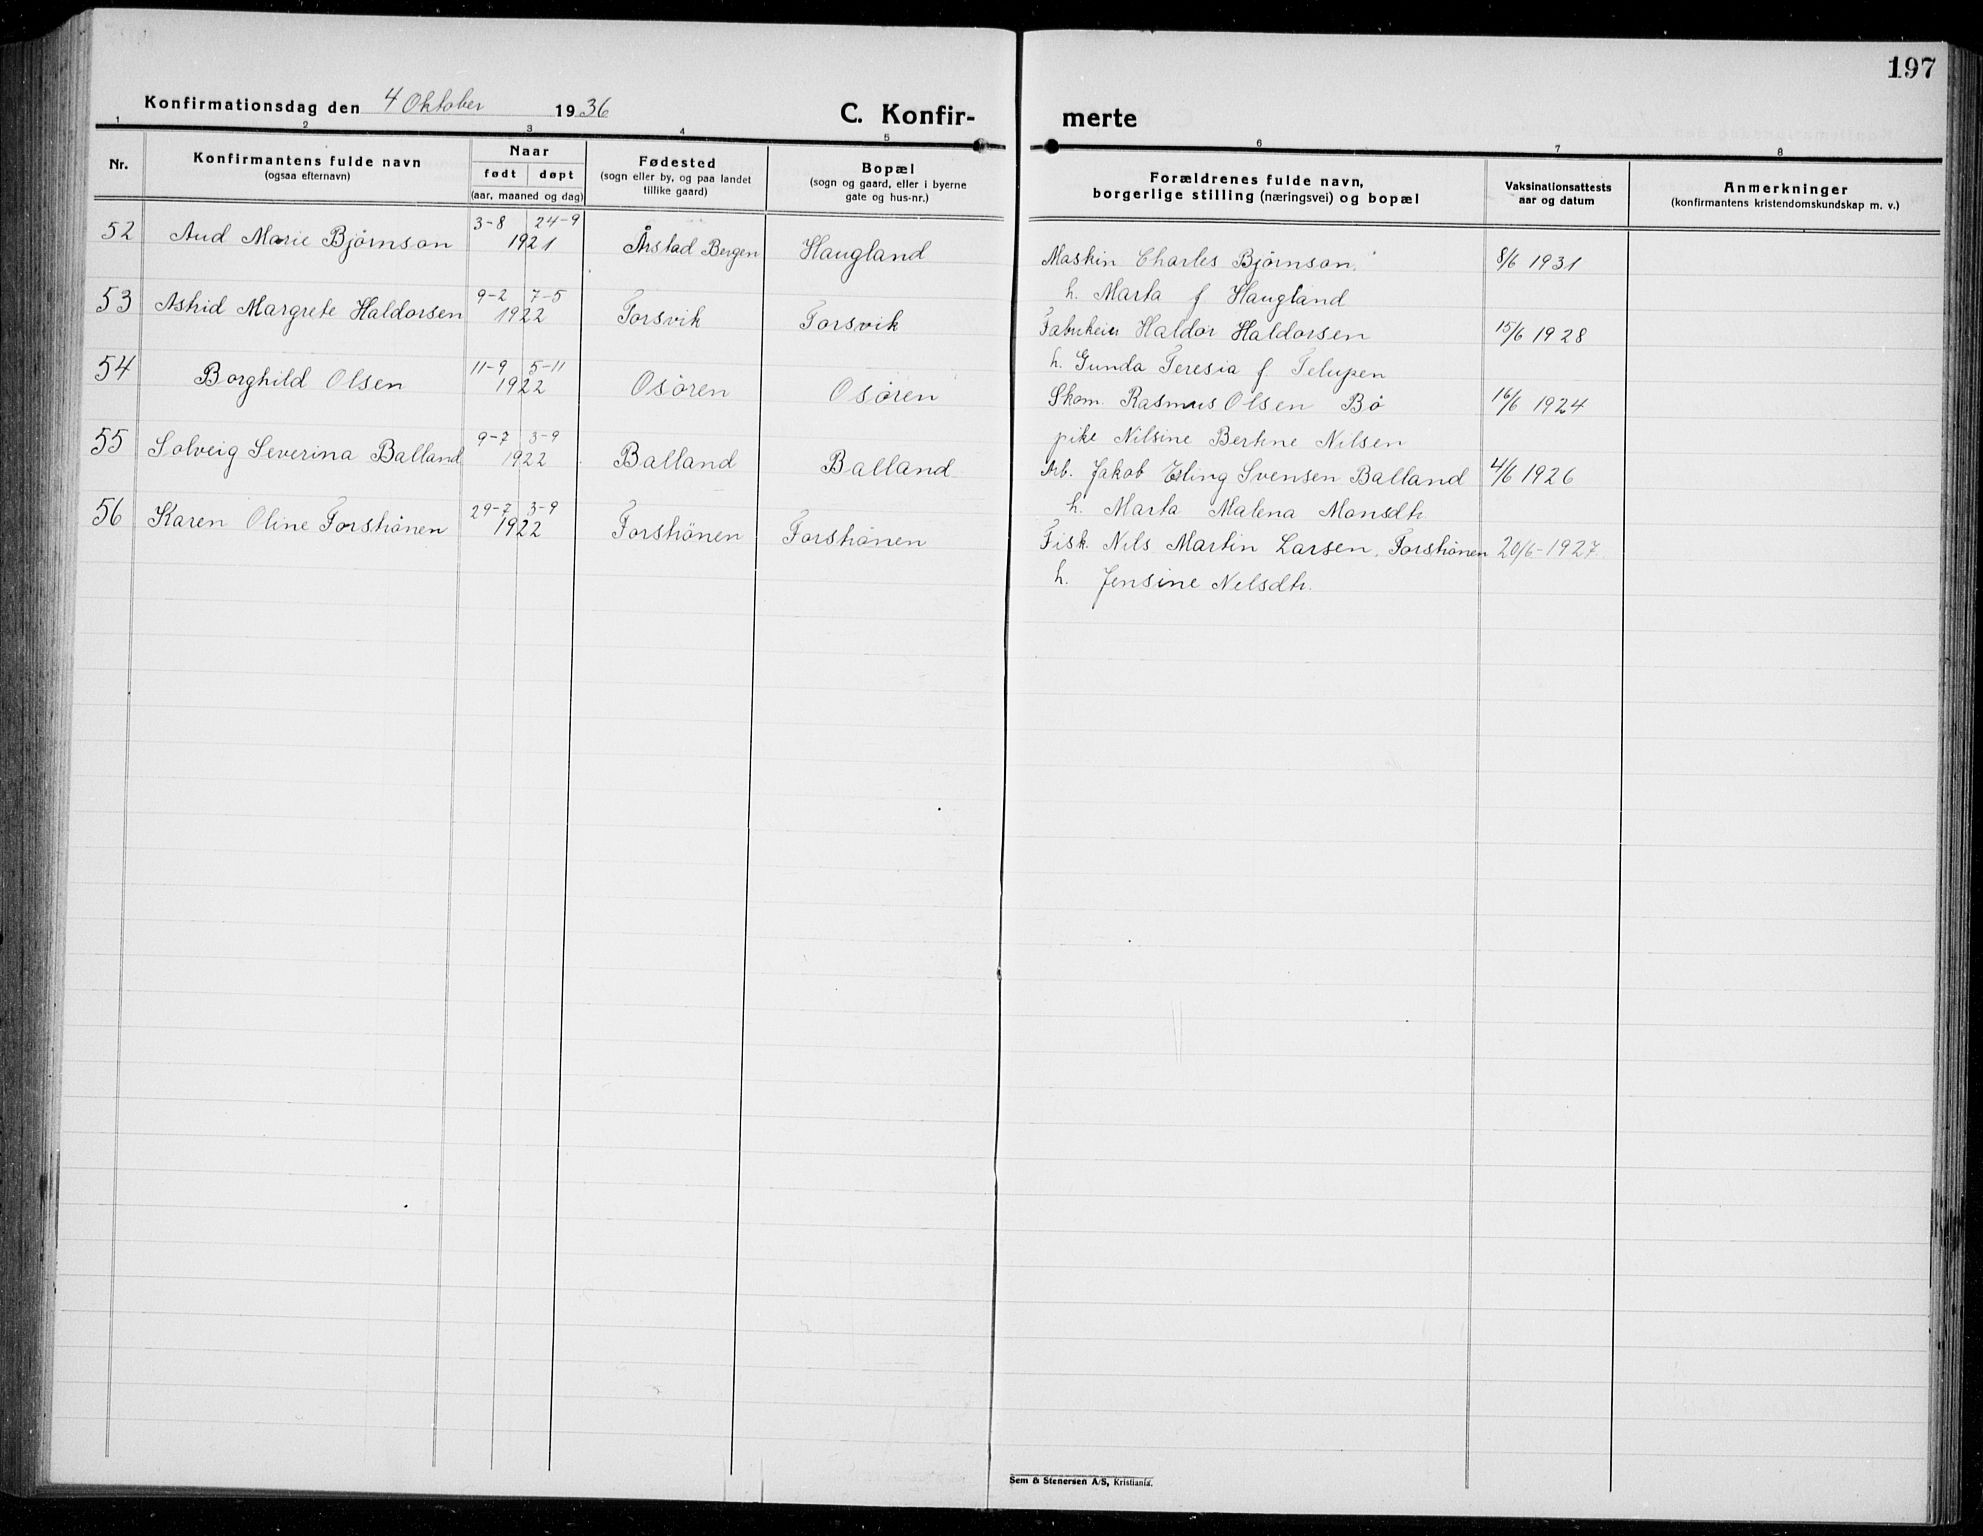 197
Konfirmationsdag den 4 Oktober 1936 C. Konfir- merte
1 2 3 4 5 6 7 8
Nr.
Konfirmantens fulde navn
(ogsaa efternavn)
Naar
født døpt
(aar, maaned og dag)
Fødested
(sogn eller by, og paa landet
tillike gaard)
Bopæl
(sogn og gaard, eller i byerne
gate og hus-nr.)
Forældrenes fulde navn,
borgerlige stilling (næringsvei) og bopæl
Vaksinationsattests
aar og datum
Anmerkninger
(konfirmantens kristendomskundskap m. v.)
52 Aud Marie Bjørnson 3-8 24-9 1921 Årstad Bergen Haugland Maskin Charles Bjørnson 8/6 1931
h. Marta f Haugland
53 Astrid Margrete Haldorsen 9-2 7-5 1922 Torsvik Torsvik Haldor Haldorsen 15/6 1928
h. Gunda Teresia f
54 Borghild Olsen 11-9 5-11 1922 Osøren Osøren Skom. Rasmus Olsen Bø 16/6 1924
pike Nilsine Bertine Nilsen
55 Solveig Severina Balland 9-7 3-9 1922 Balland Balland Arb. Jakob Svensen Balland 4/6 1926
h. Marta Malena Monsdtr
56 Karen Oline 29-7 3-9 1922 Fisk. Nils Martin Larsen, 20/6-1927.
h. Jensine Nilsdtr.
Sem & Stenersen A/S, Kristiania.